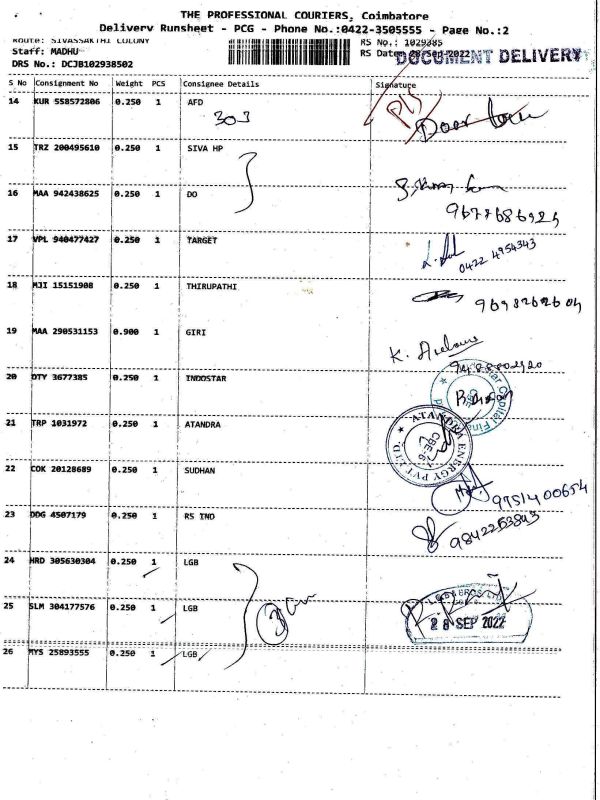 THE PROFESSIONAL COURIERS, Coimbatore
Delivery Runsheet - PCG - Phone No.:0422-3505555 - Page No.:2
Route: SIVASSAKTHI COLONY
RS No.: 1029385
Staff: MADHU
RS Date: 28-Sep-2022
DOCUMENT DELIVERY
DRS No.: DCJB102938502
S No Consignment No Weight PCS Consignee Details Signature
14 KUR 558572806 0.250 1 AFD
303
Door
15 TRZ 200495610 0.250 1 SIVA HP
16 MAA 942438625 0.250 1 DO
17 VPL 940477427 0.250 1 TARGET
0422 4954343
18 MJI 15151908 0.250 1 THIRUPATHI
19 MAA 290531153 0.900 1 GIRI
K.
20 DTY 3677385 0.250 1 INDOSTAR
21 TRP 1031972 0.250 1 ATANDRA
ATANDRA ENERGY PVT LTD
22 COK 20128689 0.250 1 SUDHAN
9751400654
23 DDG 4507179 0.250 1 RS IND
9842263843
24 HRD 305630304 0.250 1 LGB
25 SLM 304177576 0.250 1 LGB
28 SEP 2022
26 MYS 25893555 0.250 1 LGB